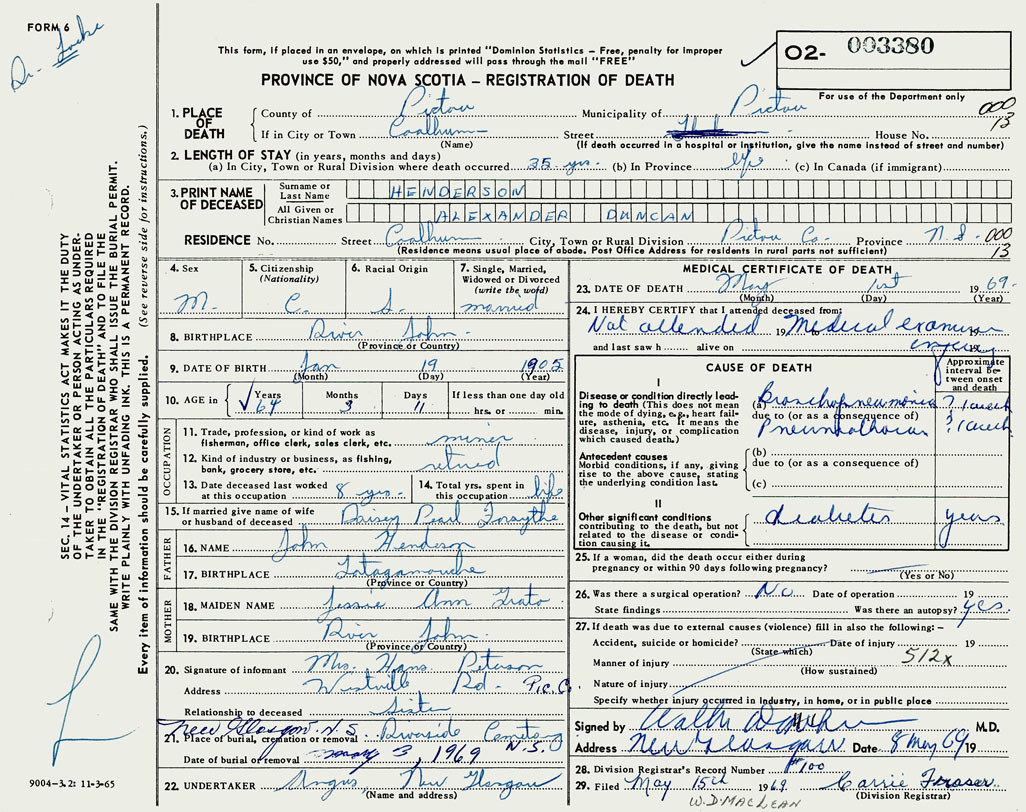 FORM 6
Dr. Locke
This form, if placed in an envelope, on which is printed "Dominion Statistics – Free, penalty for improper
use $50," and properly addressed will pass through the mail "FREE"
PROVINCE OF NOVA SCOTIA – REGISTRATION OF DEATH
O2- 003380
For use of the Department only
000
13
1. PLACE OF DEATH
County of Pictou Municipality of Pictou
If in City or Town Coalburn Street House No.
(Name) (If death occurred in a hospital or institution, give the name instead of street and number)
2. LENGTH OF STAY (in years, months and days)
(a) In City, Town or Rural Division where death occurred 35 yrs. (b) In Province life (c) In Canada (if immigrant)
3. PRINT NAME OF DECEASED
Surname or Last Name HENDERSON
All Given or Christian Names ALEXANDER DUNCAN
RESIDENCE No. Street Coalburn City, Town or Rural Division Pictou Co. Province N.S. 000
(Residence means usual place of abode. Post Office Address for residents in rural parts not sufficient) 13
4. Sex M.
5. Citizenship (Nationality) C.
6. Racial Origin S.
7. Single, Married, Widowed or Divorced (write the word) married
8. BIRTHPLACE River John
(Province or Country)
9. DATE OF BIRTH Jan 19 1905
(Month) (Day) (Year)
10. AGE in Years 64 Months 3 Days 11 If less than one day old
hrs. or min.
OCCUPATION
11. Trade, profession, or kind of work as
fisherman, office clerk, sales clerk, etc. miner
12. Kind of industry or business, as fishing,
bank, grocery store, etc. retired
13. Date deceased last worked at this occupation 8 yrs.
14. Total yrs. spent in this occupation life
15. If married give name of wife
or husband of deceased Daisey Pearl Forsythe
FATHER
16. NAME John Henderson
17. BIRTHPLACE Tatagamouche
(Province or Country)
MOTHER
18. MAIDEN NAME Jessie Ann
19. BIRTHPLACE River John
(Province or Country)
20. Signature of informant Mrs. Hans Peterson
Address Westville Rd. Pic. Co.
Relationship to deceased Sister
New Glasgow. N.S. Riverside Cemetery
21. Place of burial, cremation or removal N.S.
Date of burial or removal May 3, 1969
22. UNDERTAKER Angus, New Glasgow
(Name and address)
MEDICAL CERTIFICATE OF DEATH
23. DATE OF DEATH May 1st 1969.
(Month) (Day) (Year)
24. I HEREBY CERTIFY that I attended deceased from:
Not attended 19 Medical examiner
and last saw h alive on inquiry 19
CAUSE OF DEATH
Approximate interval between onset and death
I
Disease or condition directly leading to death (This does not mean the mode of dying, e.g., heart failure, asthenia, etc. It means the disease, injury, or complication which caused death.)
(a) Bronchopneumonia ? 1 week
due to (or as a consequence of)
Pneumothorax ? 1 week
Antecedent causes
Morbid conditions, if any, giving rise to the above cause, stating the underlying condition last.
(b)
due to (or as a consequence of)
(c)
II
Other significant conditions
contributing to the death, but not related to the disease or condition causing it.
diabetes years
25. If a woman, did the death occur either during
pregnancy or within 90 days following pregnancy?
(Yes or No)
26. Was there a surgical operation? No Date of operation 19
State findings Was there an autopsy? yes.
27. If death was due to external causes (violence) fill in also the following: –
Accident, suicide or homicide? Date of injury 19
(State which) 512x
Manner of injury
(How sustained)
Nature of injury
Specify whether injury occurred in industry, in home, or in public place
Signed by M.D.
Address New Glasgow Date 8 May 69 19
28. Division Registrar's Record Number #100
29. Filed May 15th 1969 Carrie Fraser
(Division Registrar)
W.D. MACLEAN
SEC. 14 – VITAL STATISTICS ACT MAKES IT THE DUTY
OF THE UNDERTAKER OR PERSON ACTING AS UNDER-
TAKER TO OBTAIN ALL THE PARTICULARS REQUIRED
IN THE "REGISTRATION OF DEATH" AND TO FILE THE
SAME WITH THE DIVISION REGISTRAR WHO SHALL ISSUE THE BURIAL PERMIT.
WRITE PLAINLY WITH UNFADING INK. THIS IS A PERMANENT RECORD.
Every item of information should be carefully supplied. (See reverse side for instructions.)
L
9004–3.2: 11-3-65